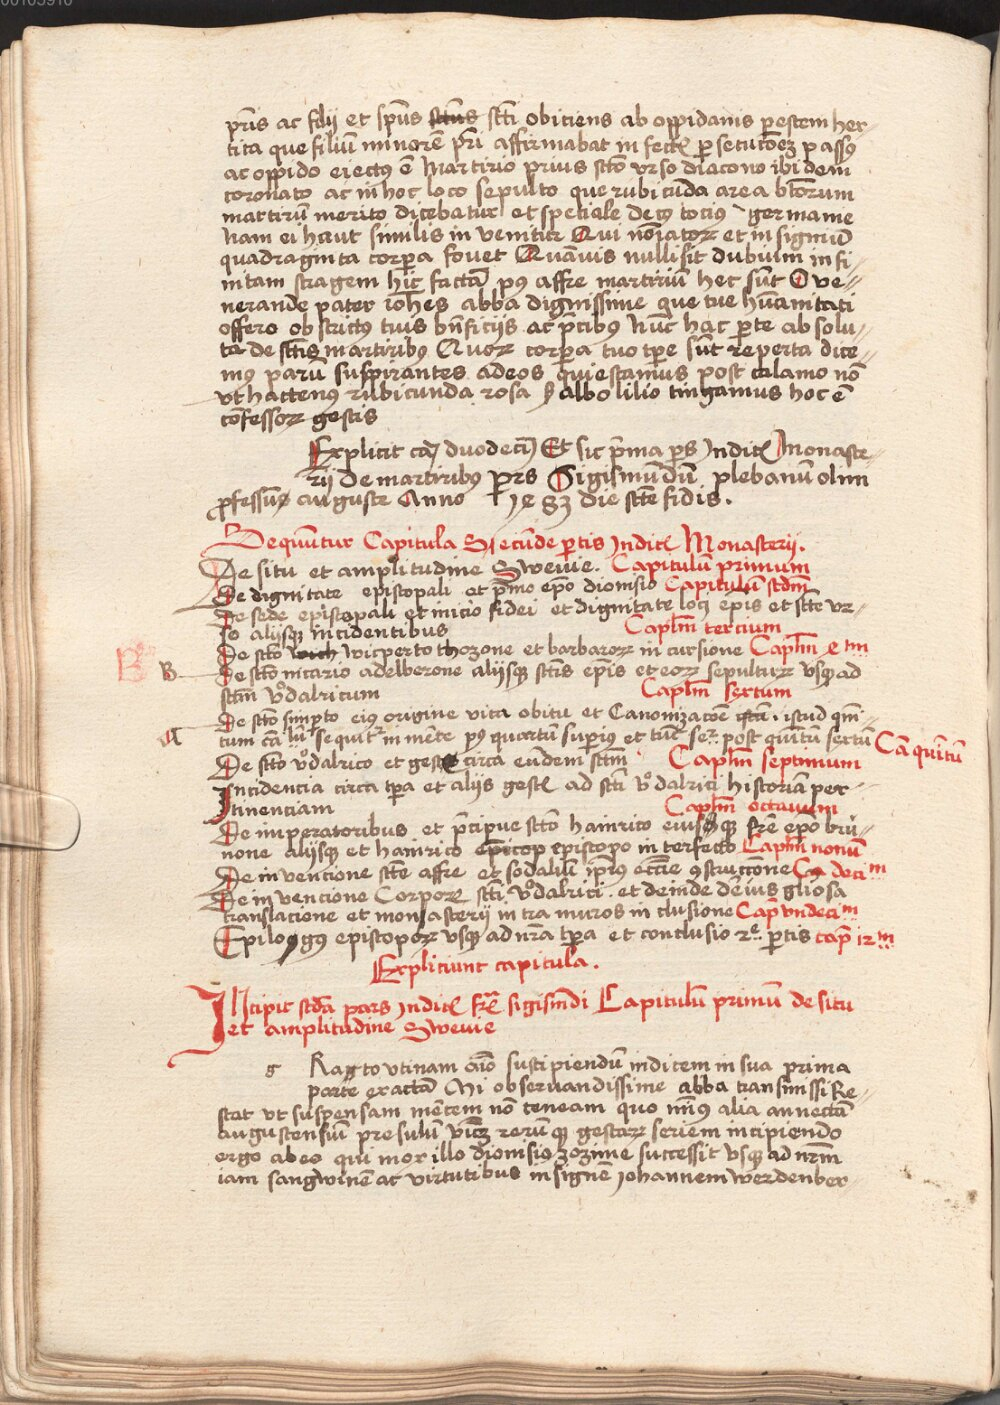 00105910
p̄ris ac filij et sp̄us sc̄ti obiciens ab oppidanis pestem her-
tita que filium minorē pr̄i affirmabat in fect persecucōez passꝯ
ac oppido eiectꝯ ē Martirio prius scto vrso diacono ibidem
coronato ac in hoc loco sepulto que rubicunda area btōrum
martirū merito dicebatur et speciale decꝯ tocius germanie
Nam ei haut similis in venitur Qui noīatoꝝ et in signiū
quadraginta corpa fouet Quāuis nulli sit dubium in fi-
nitam stragem hic factā pꝯ affre martiriū hec sūt O ve-
nerande pater ioh̄es abba dignissime que tue hūanitati
offero ob strictꝯ tuis bn̄ficijs ac p̄cibꝯ Nūc hac parte ab solu-
ta de sctis martiribꝯ Quoꝝ corpa tuo tpe sūt reperta dice-
mꝯ parū suspirantes adeos quiescamus post calamo nō
vt hactenꝯ rubicunda rosa ꝫ albo lilio tingamus hoc ē
cōfessoꝝ gestis
Explicit ca duodecī Et sic p̄ma ps Indicꝭ Monaste-
rij de martiribꝯ prs Sigismūdū plebanū olim
ꝓfessuꝫ auguste Anno 1483 die scte fidis.
Sequūtur Capitula Secūde ptis Indicꝭ Monasterij.
De situ et amplitudine Sweuie. Capitulū primum
De dignitate episcopali et p̄mo epō dionisio Capitulū scdm̄
De sede episcopali et inicio fidei et dignitate locꝭ ep̄is et scte vr-
so alijsqꝫ incidentibus Caplm̄ tercium
De scto wich wicperto thozone et barbaroꝝ in cursione Caplm̄ 4m
B De scto nicario adelberone alijsqꝫ sctis ep̄is et eoꝝ sepulturꝭ vsqꝫ ad
sctm̄ vͦdalricum Caplm̄ sextum
De scto simpto eiꝯ origine vita obitu et Canonizacōe istud qm̄
A tum cā sequitr in mete pꝯ quartū superiꝯ et tūc post quītū sextū Cā quītū
De scto vͦdalrico et gestꝭ circa eūdem sctm̄ Caplm̄ septimum
Incidencia circa tpa et alijs gestꝭ ad scti vͦdalrici historiam per-
tinenciam Caplm̄ octauum
De imperatoribus et p̄cipue scto hainrico eiusqꝫ fr̄e epō brū-
none alijsqꝫ et hainrico epīscop episcopo in terfecto Caplm̄ nonū
De in vencione scte affre et sodaliū ip̄ius ecctīe ꝯstruccione Ca decim
De in vencione Corpoꝝ scti vͦdalrici et deinde deīus gliōsa
translacione et monasterij in tra muros in clusione Cap vndecim
Epilogus episcopoꝝ vsqꝫ ad nr̄a tpa et conclusio 2e ptis cap 12m
Expliciunt capitula.
INcipit scda pars Indicꝭ fr̄is sigismūdi Capitulū primū de situ
et amplitudine Sweuie
g RAgto vtinam aīo suscipiendū indicem in sua prima
parte exactā Mi obseruandissime abba transmissi Re-
stat vt suspensam mētem nō teneam quo minꝯ alia annectā
augustensiū presulū vicꝫ rerūqꝫ gestaꝝ seriem incipiendo
ergo ab eo qui mox illo dionisio zozime successit vsqꝫ ad nr̄m
iam sangwinē ac virtutibus insignē iohannem werdenber-